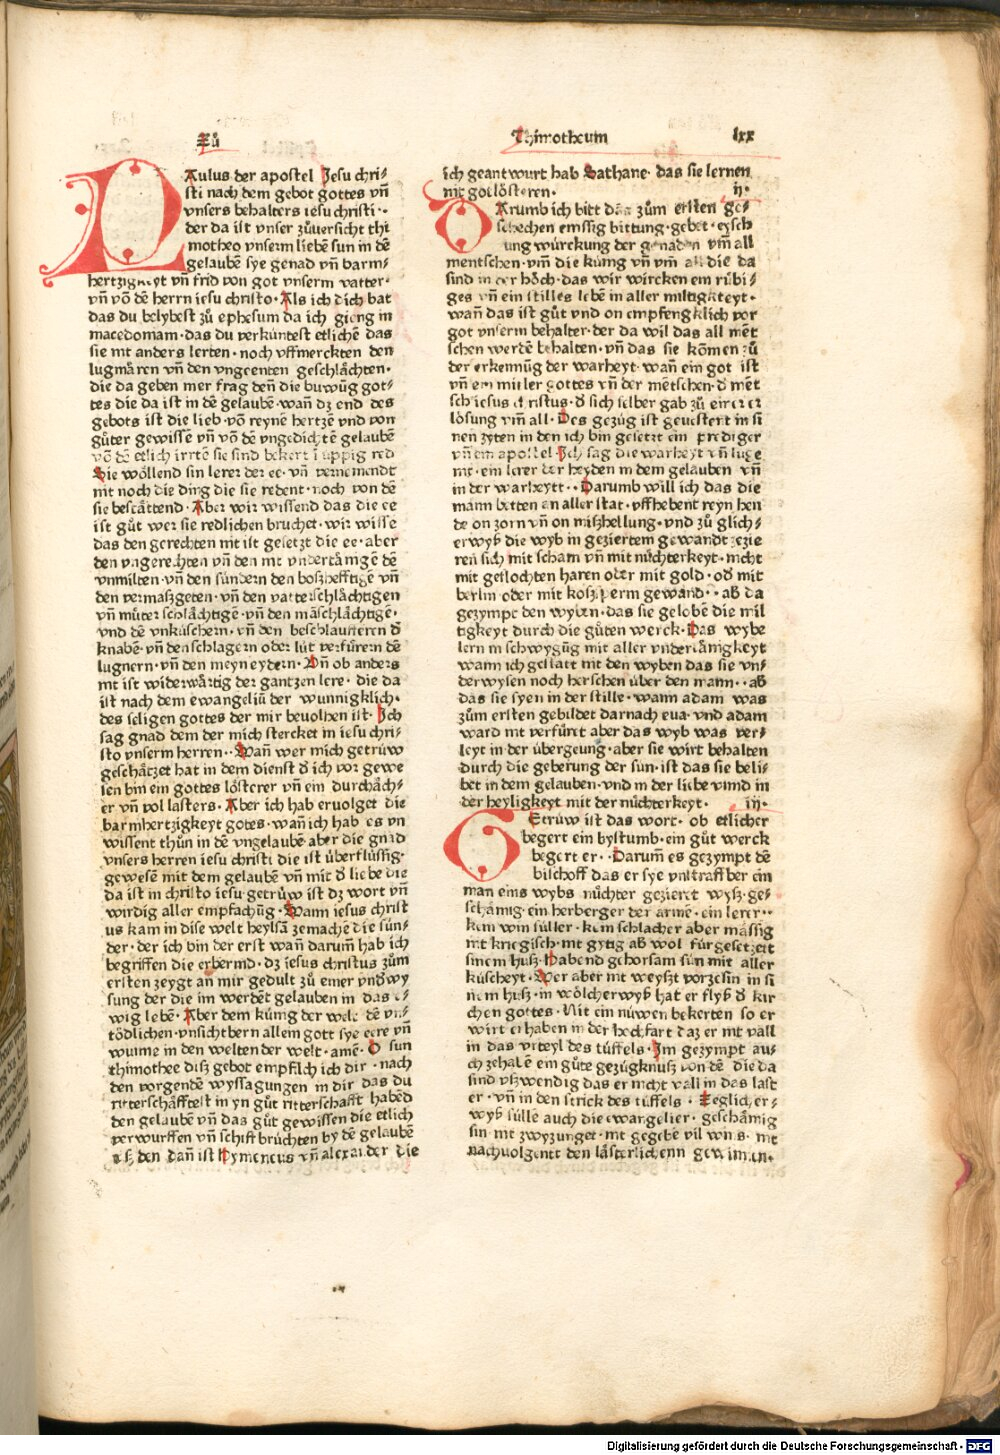 Zů
Thimotheum
lxx
PAulus der apostel Jesu chri⸗
sti nach dem gebot gottes vñ
vnsers behalters iesu christi·
der da ist vnser zůuersicht thi
motheo vnserm liebē sun in dē
gelaubē sye genad vñ barm⸗
hertzigkeyt vñ frid von got vnserm vatter·
vñ võ dē herrn iesu christo· Als ich dich bat
das du belybest zů ephesum da ich gieng in
macedoniam·das du verkůntest etlichē das
sie nit anders lerten·noch vffmerckten den
lugmären vñ den vngeenten geschlächten·
die da geben mer frag deñ die buwūg got⸗
tes die da ist in dē gelaubē·wañ dz end des
gebots ist die lieb·võ reynē hertzē vnd von
gůter gewissē vñ võ dē vngedichtē gelaubē
võ dē etlich irrtē sie sind bekert ī üppig red
Sie wöllend sin lerer der ee·vñ vernemendt
nit noch die ding die sie redent·noch von dē
sie bestättend·Aber wir wissend das die ee
ist gůt wer sie redlichen bruchet·wir wissē
das den gerechten nit ist gesetzt die ee·aber
den vngerechten vñ den nit vndertänigē dē
vnmilten·vñ den sündern den boßhefftigē vñ
den vermaßgeten·vñ den vatterschlächtigen
vñ můterschlächtigē·vñ den māschlächtigē·
vnd dē vnküschern·vñ den beschlaufferen d̄
knabē·vñ den schlagern oder lüt verfürern dē
lugnern·vñ den meyneydern·Vñ ob anders
nit ist widerwärtig der gantzen lere·die da
ist nach dem ewangeliū der wunnigklich·
des seligen gottes der mir bevolhen ist·Ich
sag gnad dem der mich stercket in iesu chri⸗
sto vnserm herren··Wañ wer mich getrüw
geschätzet hat in dem dienst d̄ ich vor gewe
sen bin ein gottes lösterer vñ ein durchäch⸗
er vñ vol lasters·Aber ich hab eruolget die
barmhertzigkeyt gotes·wañ ich hab es vn
wissent thůn in dē vngelaubē aber die gnad
vnsers herren iesu christi die ist überflüssig·
gewesē mit dem gelaubē vñ mit d̄ liebe die
da ist in christo iesu·getrüw ist dz wort vñ
wirdig aller empfachūg·Wann iesus christ
us kam in dise welt heylsā zemachē die sün⸗
der·der ich bin der erst wañ darum̄ hab ich
begriffen die erbermd·dz iesus christus zům
ersten zeygt an mir gedult zů einer vnd̄wy
sung der die im werdēt gelauben in das e⸗
wig lebē·Aber dem künig der welt dē vn⸗
tödlichen·vnsichtbern allein gott sye eere vñ
wunne in den welten der welt·amē·O sun
thimothee diß gebot empfilch ich dir·nach
den vorgendē wyssagungen in dir das du
ritterschäfftest in yn gůt ritterschafft habēd
den gelaubē vñ das gůt gewissen die etlich
verwurffen vñ schiffbrüchten by dē gelaubē
vß den dañ ist Hymeneus vñ alexander die
ich geantwurt hab Sathane·das sie lernen
nit gotlösteren·
ij·
DArumb ich bitt das zům ersten ge⸗
schechen emssig bittung·gebet·eysch
ung würckung der genaden vm̄ all
mentschen·vm̄ die künig vñ vm̄ all die da
sind in der höch·das wir wircken ein rübi⸗
ges vñ ein stilles lebē in aller miltigkeyt·
wañ das ist gůt vnd on empfengklich vor
got vnserm behalter·der da wil das all mēt
schen werdē behalten·vñ das sie kōmen zů
der erkennūg der warheyt·wañ ein got ist
vñ ein mitler gottes vñ der mētschen·d̄ mēt
sch iesus christus·d̄ sich selber gab zů einer er
lösung vm̄ all·Des gezüg ist geuestent in si
nen zyten in den ich bin gesetzt ein prediger
vñ ein apostel·Ich sag die warheyt vñ lüge
nit·ein lerer der heyden in dem gelauben vñ
in der warheytt··Darumb will ich das die
mann betten an aller stat·vffhebent reyn hen
de on zorn vñ on mißhellung·vnd zů glich⸗
erwyß die wyb in geziertem gewandt zezie
ren sich mit scham vñ mit nüchterkeyt·nicht
mit geflochten haren oder mit gold·od̄ mit
berlin oder mit koßperm gewand··ab da
gezympt den wyben·das sie gelobē die mil
tigkeyt durch die gůten werck·Das wybe
lern in schwygūg mit aller vndertänigkeyt
wann ich gestatt nit den wyben das sie vn⸗
derwysen noch herschen über den mann··ab
das sie syen in der stille·wann adam was
zům ersten gebildet darnach eua·vnd adam
ward nit verfüret aber das wyb was ver⸗
leyt in der übergeung·aber sie wirt behalten
durch die geberung der sün·ist das sie beli⸗
bet in dem gelauben·vnd in der liebe vnnd in
der heyligkeyt mit der nüchterkeyt·
iij·
GEtrüw ist das wort·ob etlicher
begert ein bystumb·ein gůt werck
begert er··Darum̄ es gezympt dē
bischoff das er sye vnstraffber ein
man eins wybs nüchter gezieret wyß·ge⸗
schämig·ein herberger der armē·ein lerer··
kein win süller·kein schlacher aber mässig
nit kriegisch·nit gytig ab wol fürgesetzett
sinem huß·Habend gehorsam sün mit aller
küscheyt·Wer aber nit weyßt vorzesin in si
nem huß·in wölcherwyß hat er flyß d̄ kir
chen gottes·Nit ein nüwen bekerten so er
wirt erhaben in der hochfart daz er nit vall
in das vrteyl des tüffels·Im gezympt au⸗
ch zehalē ein gůte gezügknuß von dē die da
sind vßwendig das er nicht vall in das last
er·vñ in den strick des tüffels·Zeglicher⸗
wyß süllē auch die ewangelier·geschämig
sin·nit zwyzunget·nit gegebē vil wins·nit
nachuolgent den lästerlichenn gewinnen·
Digitalisierung gefördert durch die Deutsche Forschungsgemeinschaft - DFG